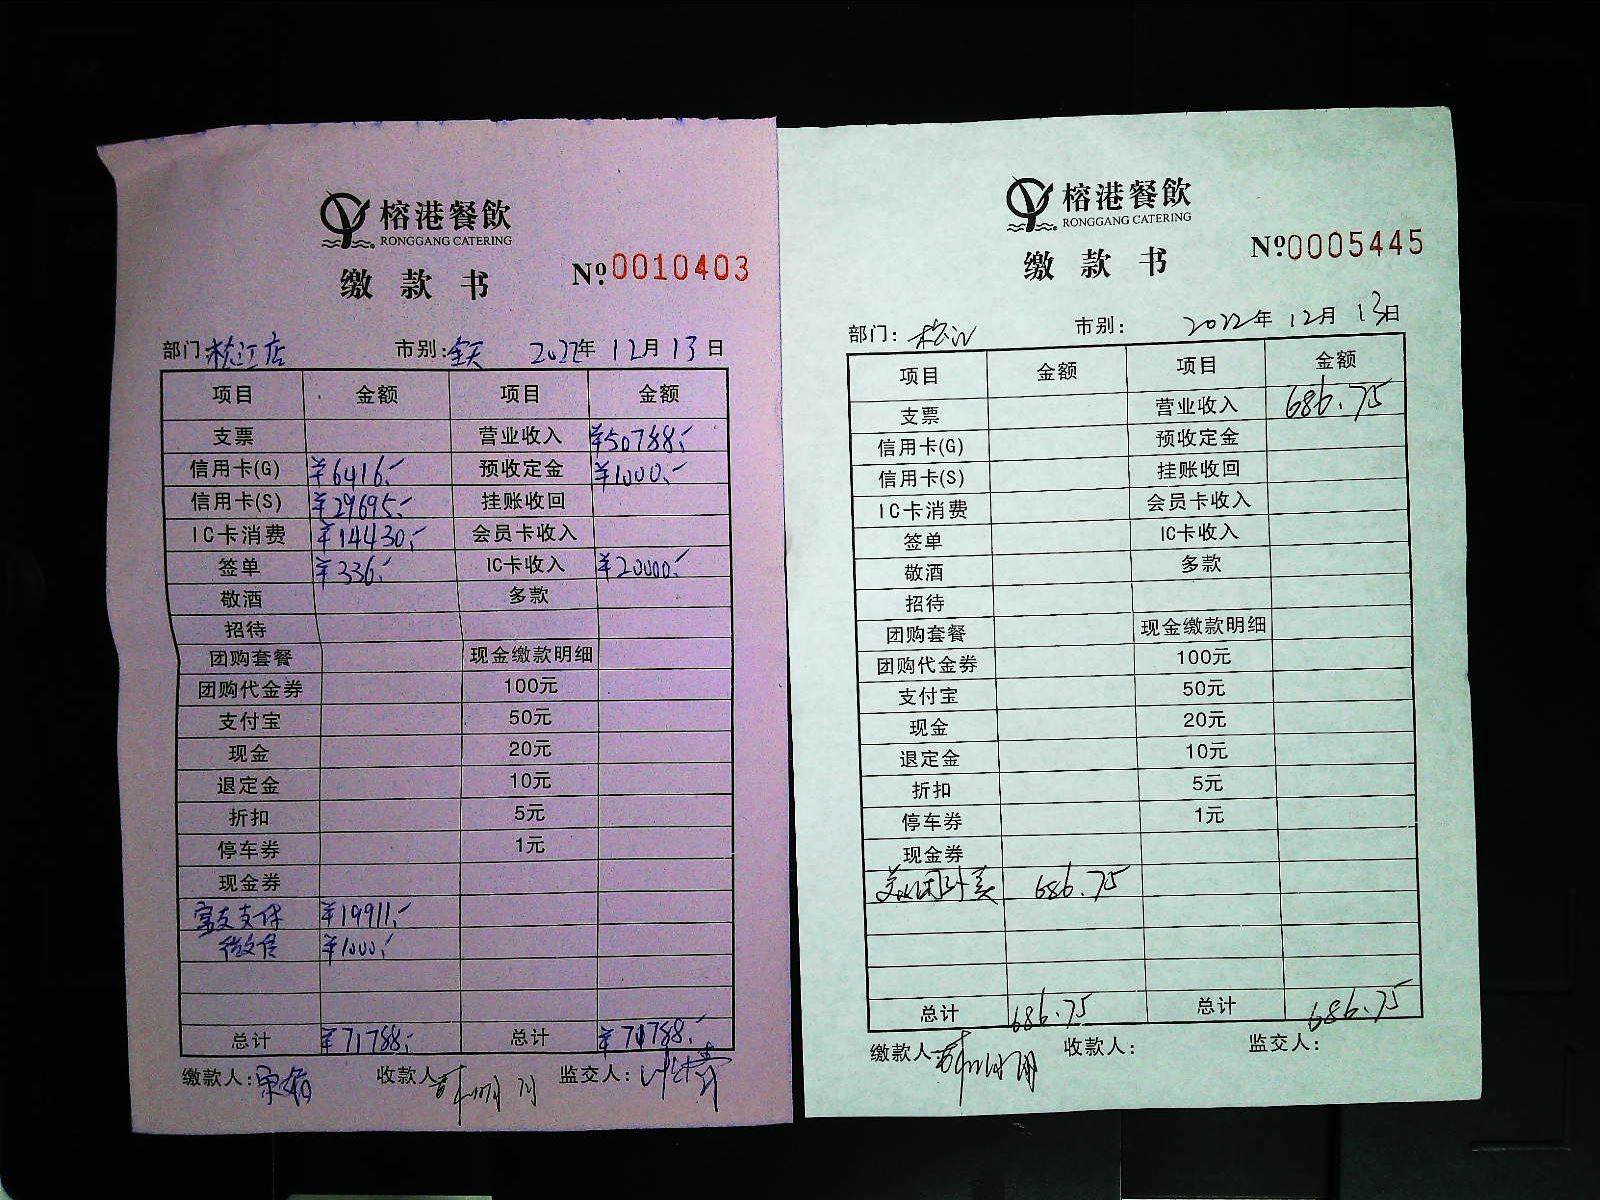 榕港餐飲
RONGGANG CATERING
缴款书
№0010403
部门 松江店 市别: 全天 2022年 12月 13日
项目 金额 项目 金额
支票 营业收入 ¥50788.-
信用卡(G) ¥6416.- 预收定金 ¥1000.-
信用卡(S) ¥29695.- 挂账收回
IC卡消费 ¥14430.- 会员卡收入
签单 ¥336.- IC卡收入 ¥20000.-
敬酒 多款
招待
团购套餐 现金缴款明细
团购代金券 100元
支付宝 50元
现金 20元
退定金 10元
折扣 5元
停车券 1元
现金券
富友支付 ¥19911.-
微信 ¥1000.-
总计 ¥71788.- 总计 ¥71788.-
缴款人: 收款人 监交人:
榕港餐飲
RONGGANG CATERING
缴款书
№0005445
部门: 松江 市别: 2022年 12月 13日
项目 金额 项目 金额
支票 营业收入 686.75
信用卡(G) 预收定金
信用卡(S) 挂账收回
IC卡消费 会员卡收入
签单 IC卡收入
敬酒 多款
招待
团购套餐 现金缴款明细
团购代金券 100元
支付宝 50元
现金 20元
退定金 10元
折扣 5元
停车券 1元
现金券
美团外卖 686.75
总计 686.75 总计 686.75
缴款人 收款人: 监交人: